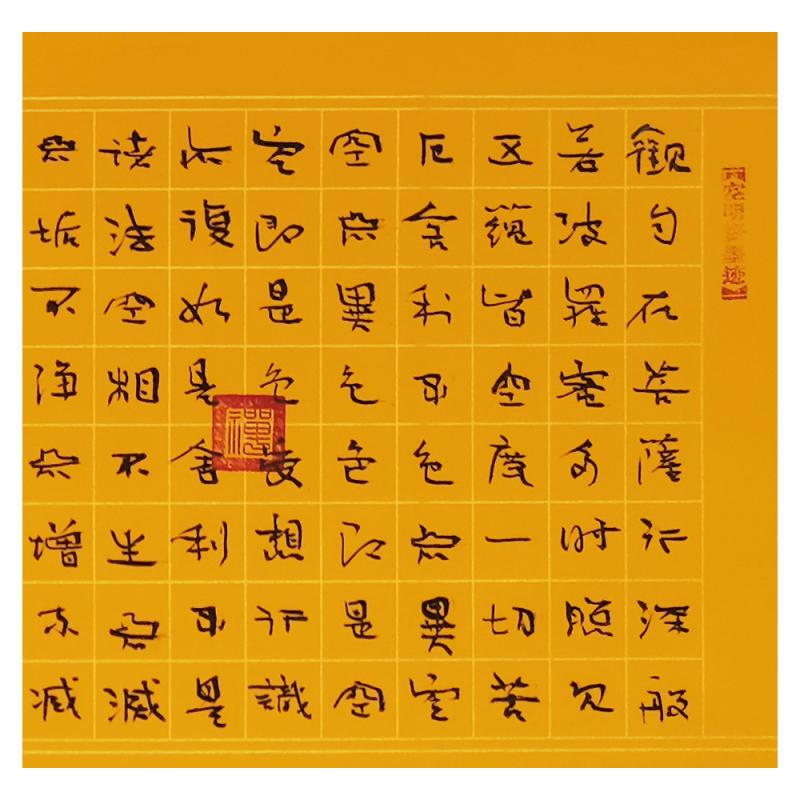 觀自在菩薩行深般
若波羅蜜多时照见
五蘊皆空度一切苦
厄舍利子色不異空
空不異色色即是空
空即是色受想行識
亦復如是舍利子是
諸法空相不生不滅
不垢不净不增不減
禪